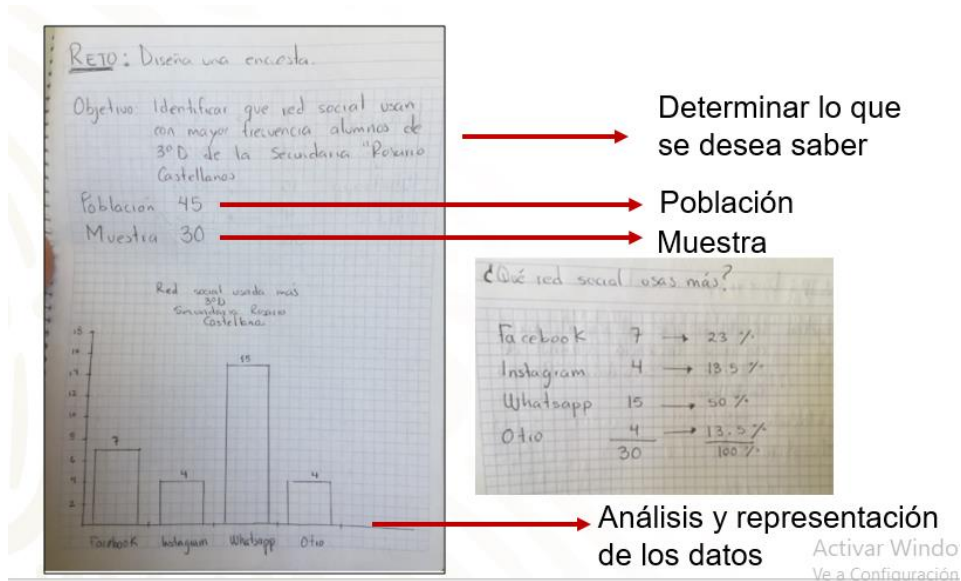 RETO: Diseña una encuesta.
Objetivo: Identificar que red social usan
con mayor frecuencia alumnos de
3º D de la Secundaria "Rosario
Castellanos
Población 45
Muestra 30
Red social usada más
3ºD
Secundaria Rosario
Castellanos
15
7
4
15
4
8
6
4
2
Facebook Instagram Whatsapp Otro
Determinar lo que
se desea saber
Población
Muestra
¿Qué red social usas más?
Facebook 7 → 23 %
Instagram 4 → 13.5 %
Whatsapp 15 → 50 %
Otro 4 → 13.5 %
30 100 %
Análisis y representación
de los datos
Activar Windo
Ve a Configuración